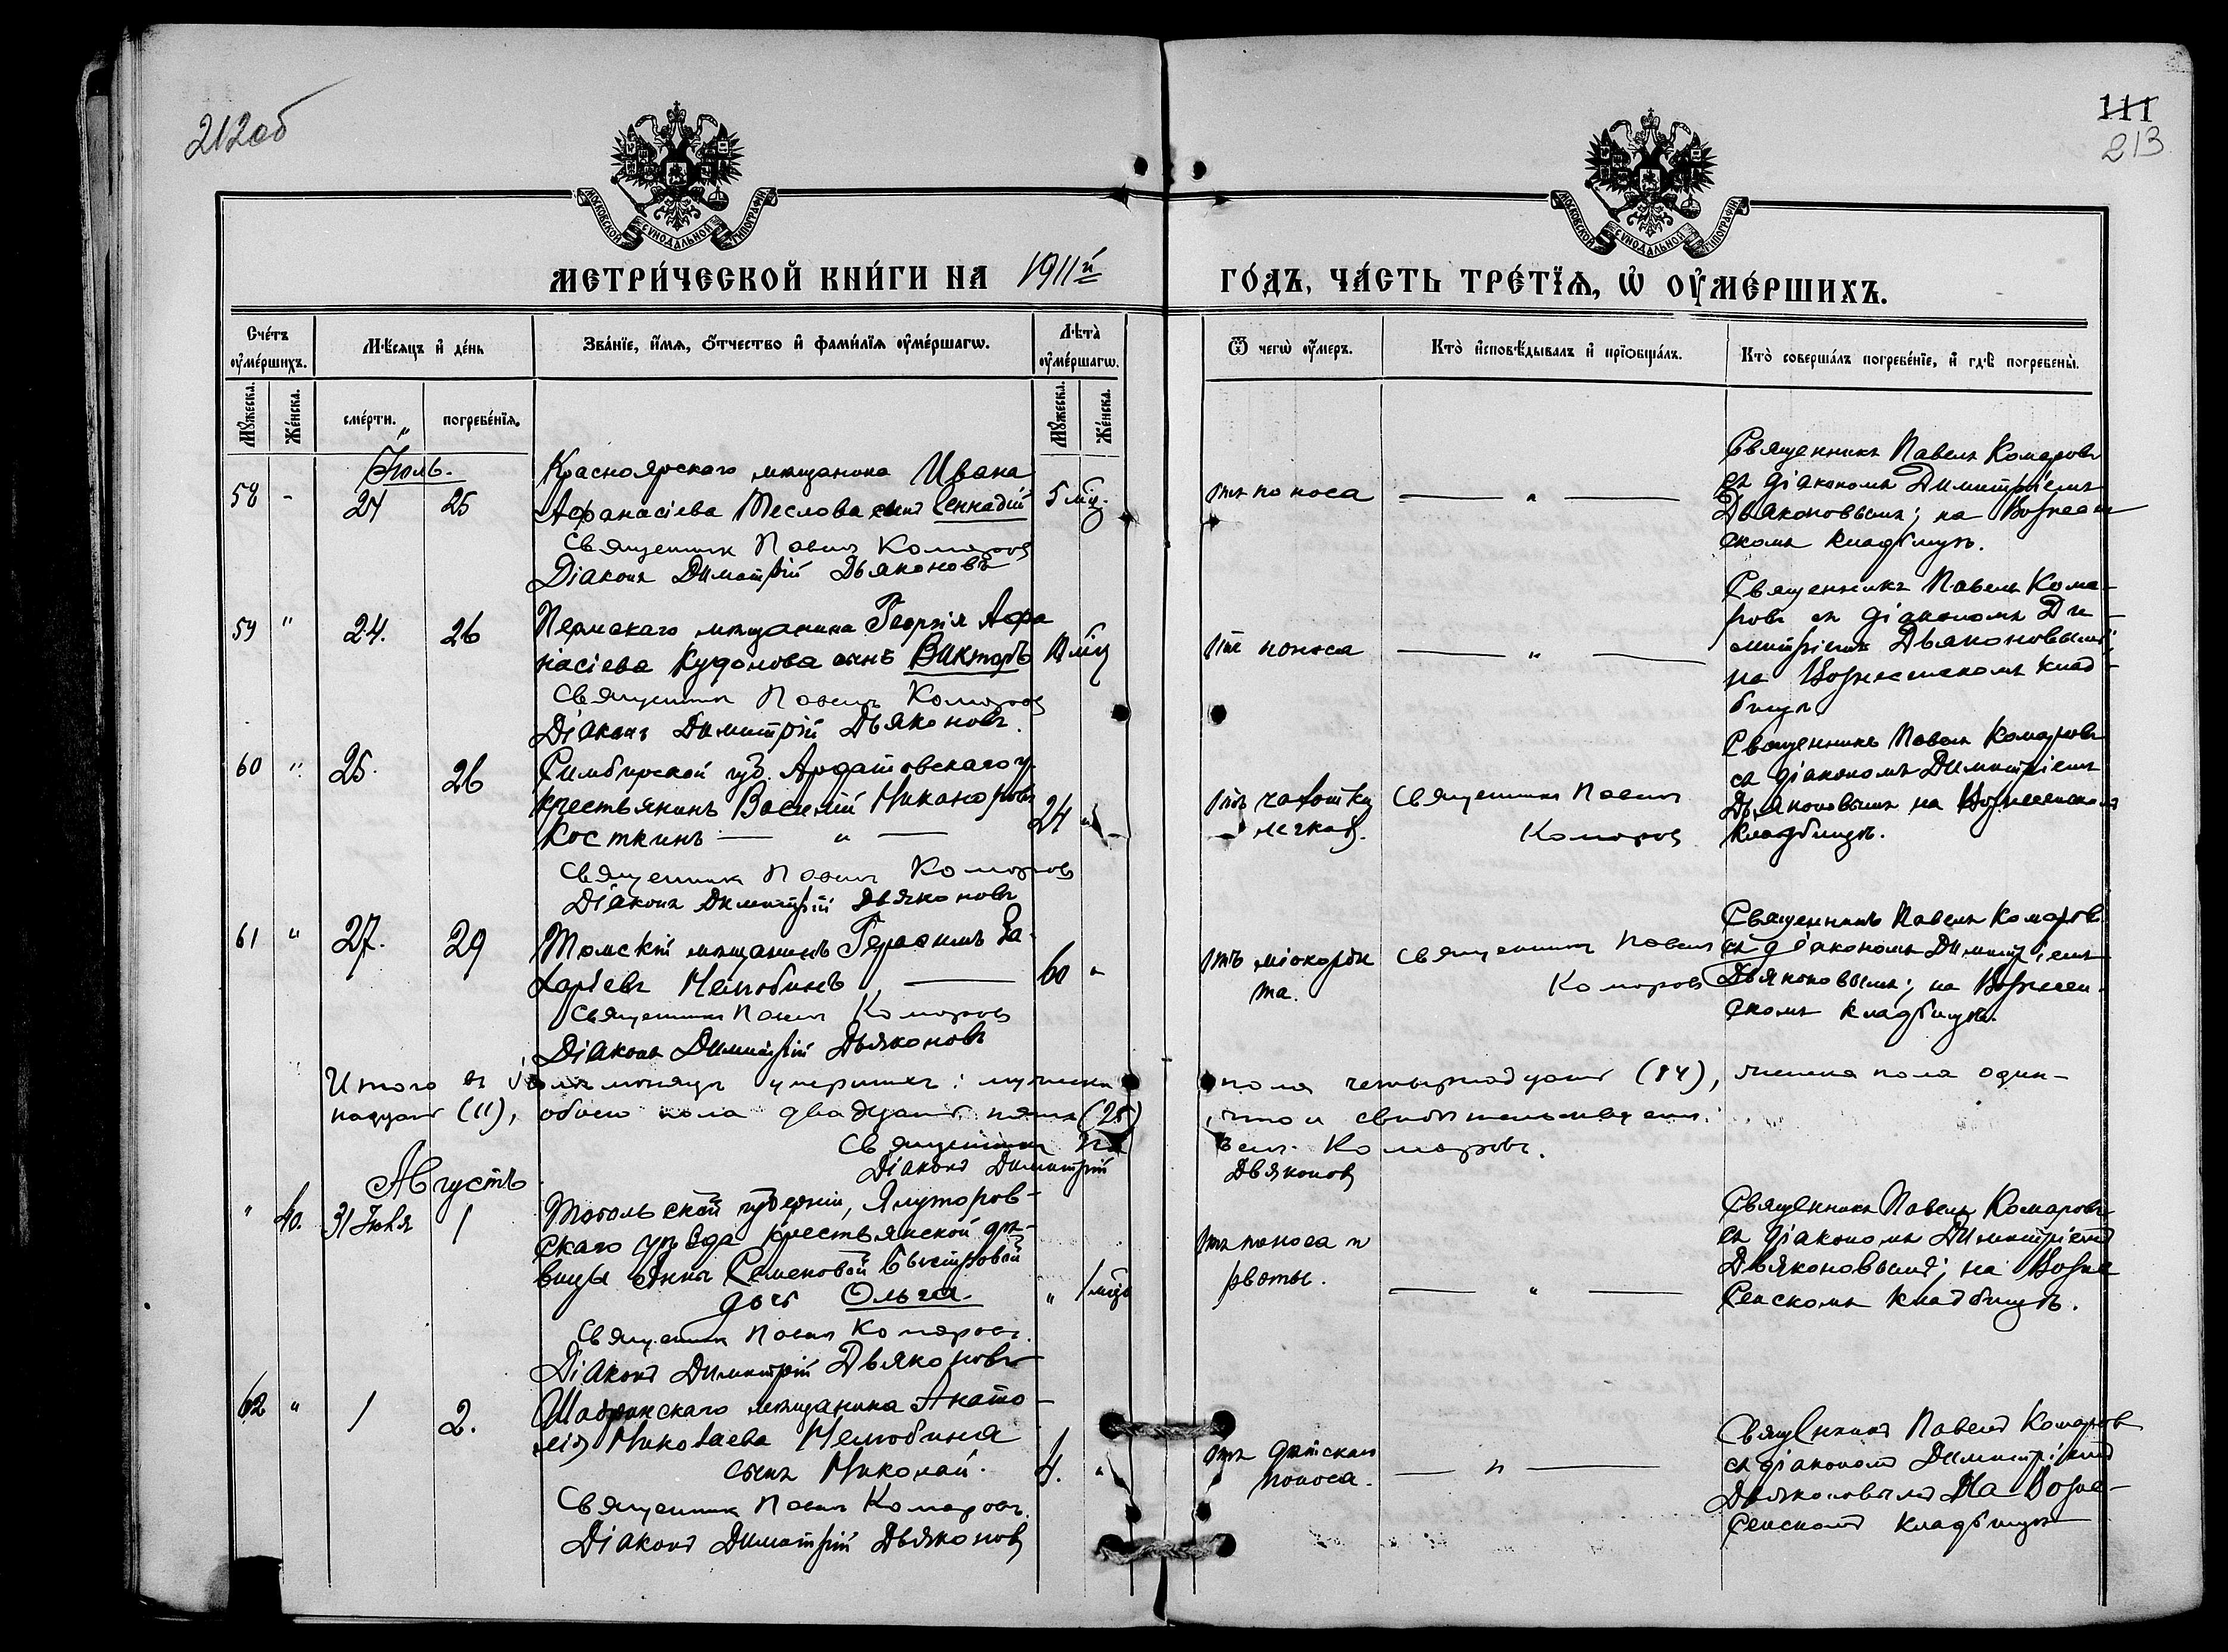 212об
111
213
МОСКОВСКОЙ СѴНОДАЛЬНОЙ ТИПОГРАФІИ
МОСКОВСКОЙ СѴНОДАЛЬНОЙ ТИПОГРАФІИ
МЕТРИ́ЧЕСКОЙ КНИ́ГИ НА 1911й
ГО́ДЪ, ЧА́СТЬ ТРЕ́ТЇѦ, Ѡ҆ ОУ҆МЕ́РШИХЪ.
Сче́тъ оу҆ме́ршихъ.
Мѣ́сяцъ и҆ де́нь
Зва́нїе, и҆́мѧ, ѻ҆́тчество и҆ фами́лїѧ оу҆ме́ршагѡ.
Лѣ́та̀ оу҆ме́ршагѡ.
Мꙋ́жеска.
Же́нска.
сме́рти.
погребе́нїѧ.
Мꙋ́жеска.
Же́нска.
Ѿ чегѡ̀ оу҆́меръ.
Кто̀ и҆сповѣ́дывалъ и҆ прїѡбща́лъ.
Кто̀ соверша́лъ погребе́нїе, и҆ гдѣ̀ погребены̀.
Іюль.
58 - 24 25
Красноярского мѣщанина Ивана
Афанасіева Теслова сынъ Геннадій
5 мѣц.
Священникъ Павелъ Комаровъ
Діаконъ Димитрій Дьяконовъ
отъ поноса — „ —
Священникъ Павелъ Комаровъ
съ діакономъ Димитріемъ
Дьяконовымъ; на Вознесен
скомъ кладбищѣ.
59 " 24. 26
Пермскаго мѣщанина Георгія Афа
насіева сынъ Викторъ
мѣц
Священникъ Павелъ Комаровъ
Діаконъ Димитрій Дьяконовъ.
отъ поноса — „ —
Священникъ Павелъ Кома-
ровъ съ діакономъ Ди-
митріемъ Дьяконовымъ;
на Вознесенскомъ клад-
бищѣ
60 " 25. 26
Симбирской губ. Ардатовскаго у.
крестьянинъ Василій Никаноровъ
Косткинъ — „ —
24 „
Священникъ Павелъ Комаровъ
Діаконъ Димитрій Дьяконовъ
отъ чахотки
легкой.
Священникъ Павелъ
Комаровъ
Священникъ Павелъ Комаровъ
съ діакономъ Димитріемъ
Дьяконовымъ на Вознесенскомъ
кладбищѣ.
61 " 27. 29
Томскій мѣщанинъ Герасимъ За-
харіевъ Нелюбинъ —
60 "
Священникъ Павелъ Комаровъ
Діаконъ Димитрій Дьяконовъ
отъ міокарди
та.
Священникъ Павелъ
Комаровъ
Священникъ Павелъ Комаровъ
съ діакономъ Димитріемъ
Дьяконовымъ; на Вознесен-
скомъ кладбищѣ.
Итого въ Іюлѣ мѣсяцѣ умершихъ: мужеска пола четырнадцать (14), женска пола один-
надцать (11), обоего пола двадцать пять (25), что и свидѣтельствуемъ.
Священникъ Павелъ Комаровъ.
Діаконъ Димитрій Дьяконовъ
Августъ
" 40. 31 Іюля 1
Тобольской губерніи, Ялуторов-
скаго уѣзда крестьянской дѣ-
вицы Анны Семеновой Быстровой
дочь Ольга
„ 1 мѣц
Священникъ Павелъ Комаровъ.
Діаконъ Димитрій Дьяконовъ
отъ поноса и
рвоты. — „ —
Священникъ Павелъ Комаровъ
съ діакономъ Димитріемъ
Дьяконовымъ; на Возне
сенскомъ кладбищѣ.
62 " 1 2.
Шадринскаго мѣщанина Анато-
лія Николаева Нелюбина
сынъ Николай.
4. „
Священникъ Павелъ Комаровъ.
Діаконъ Димитрій Дьяконовъ
отъ дѣтскаго
поноса. — „ —
Священникъ Павелъ Комаровъ
съ діакономъ Димитріемъ
Дьяконовымъ На Возне-
сенскомъ кладбищѣ